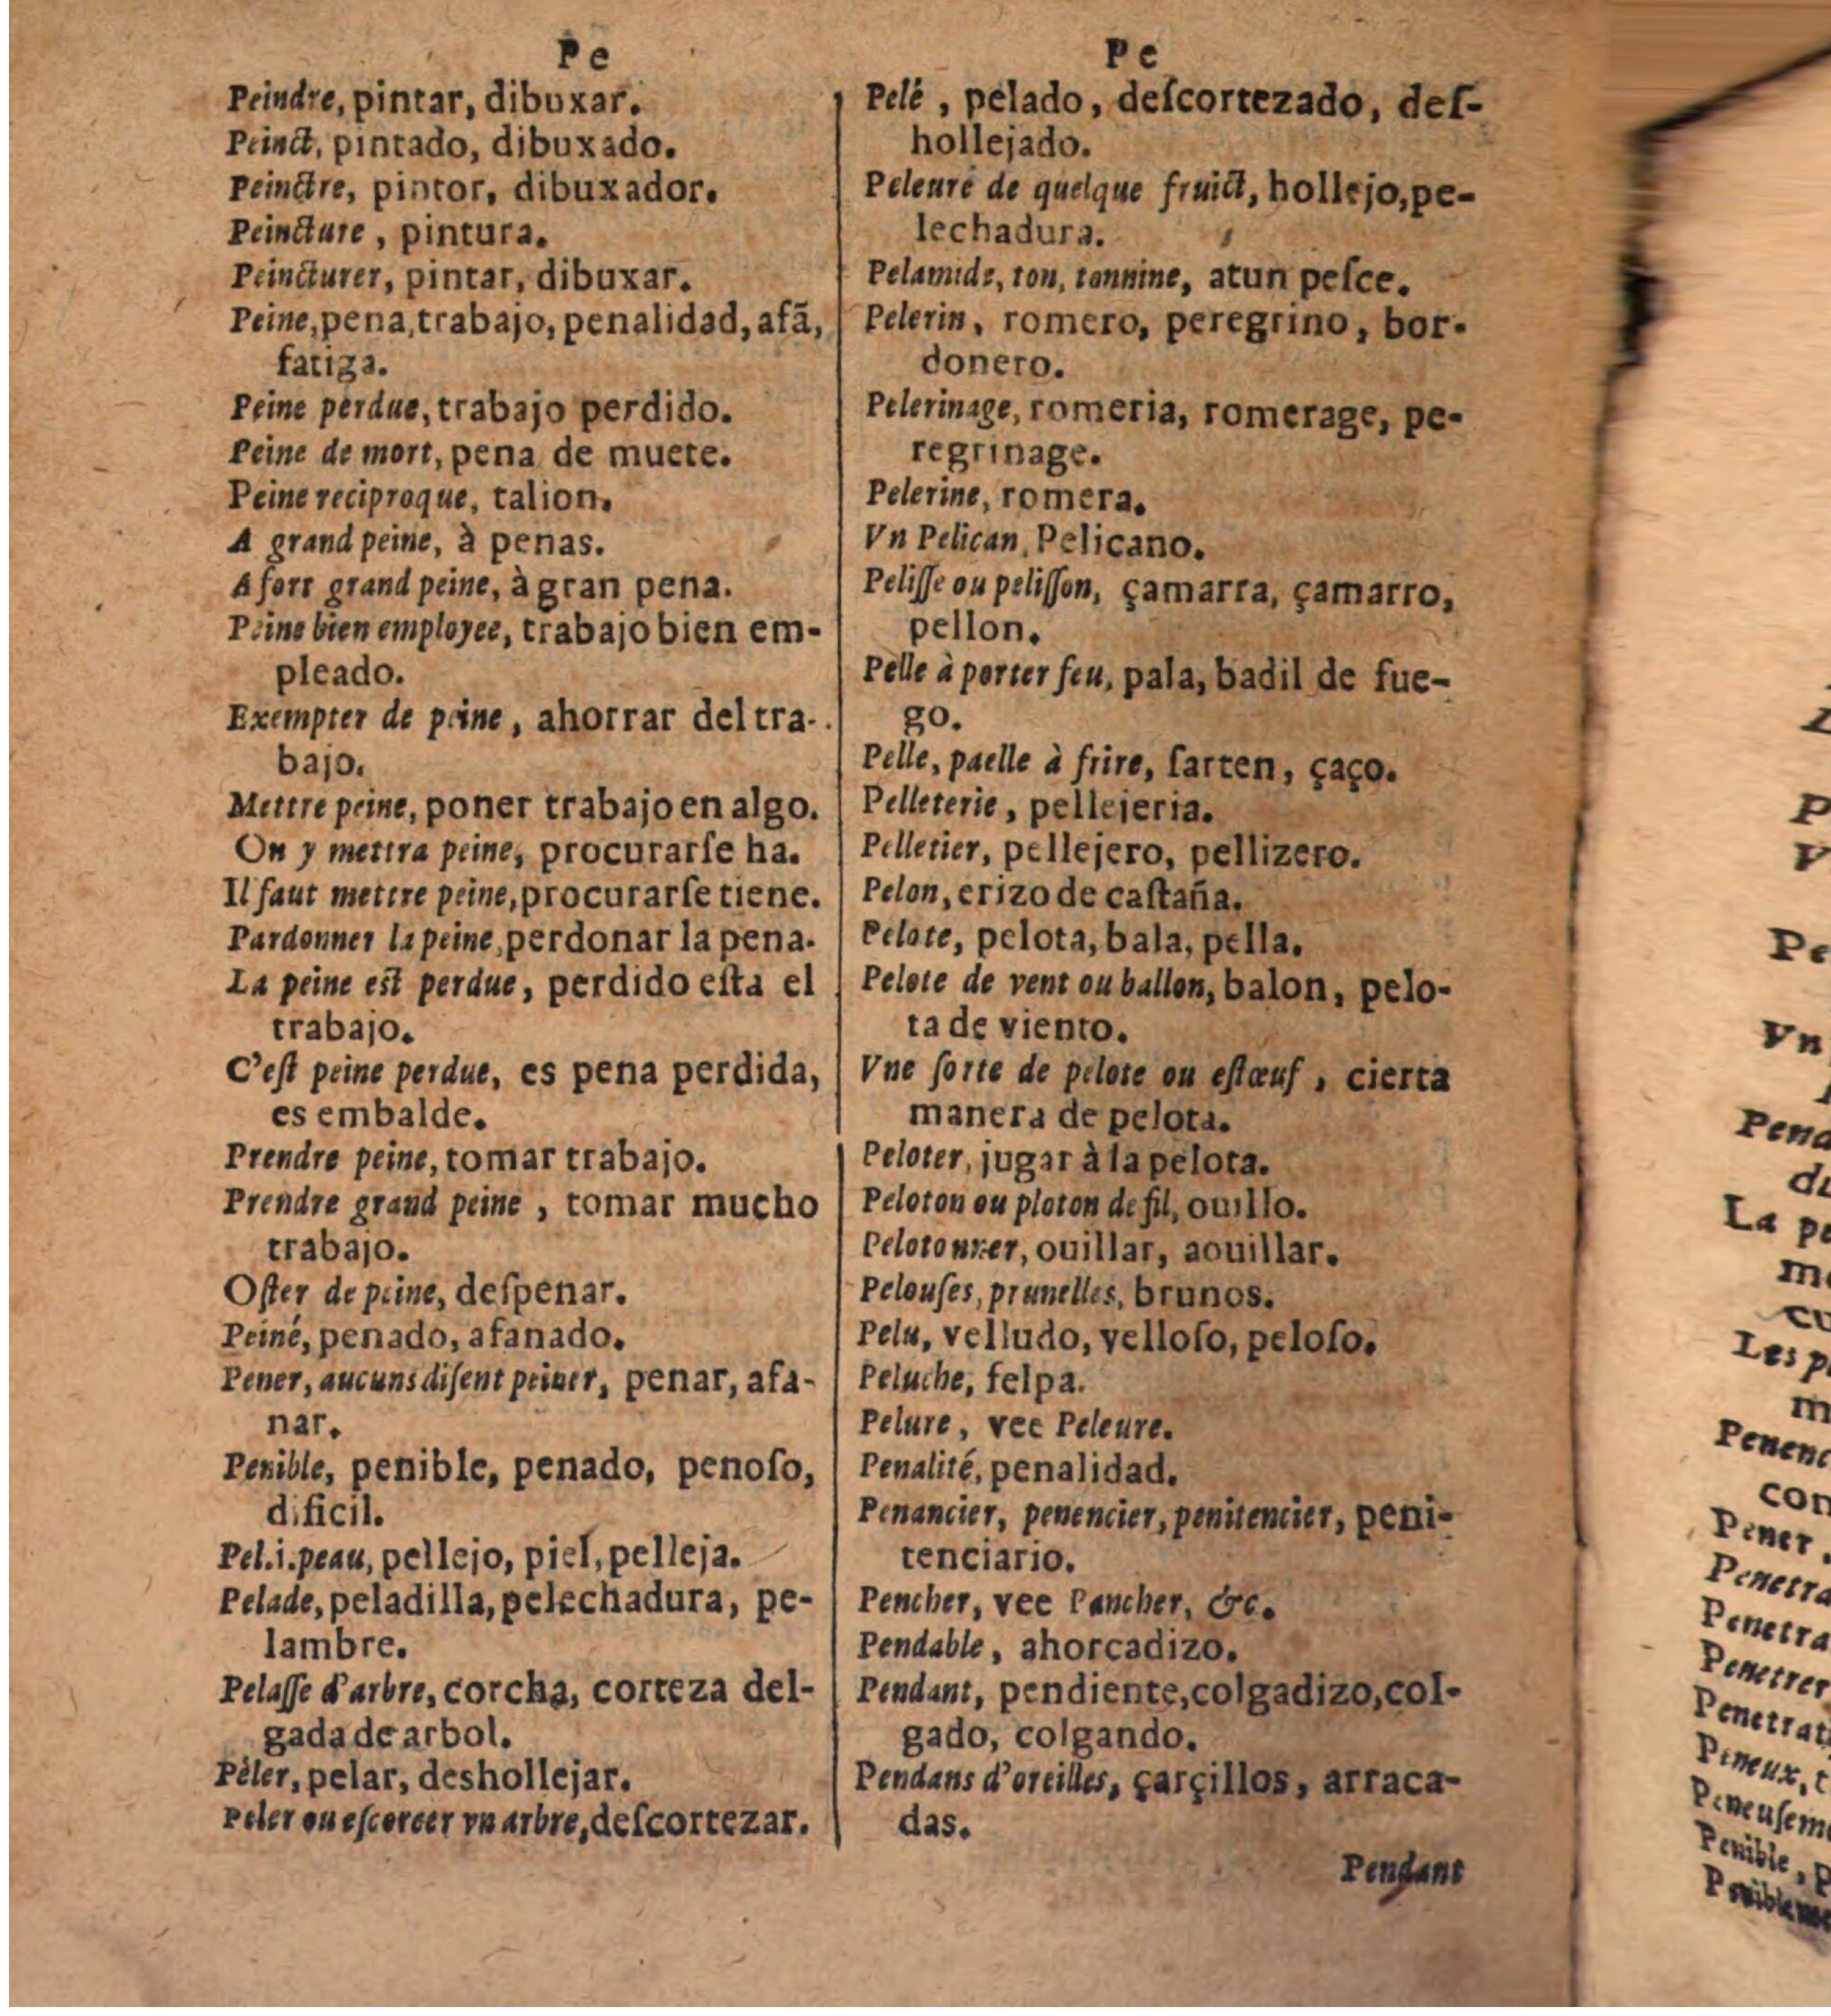 Pe
Peindre, pintar, dibuxar.
Peinct, pintado, dibuxado.
Peinctre, pintor, dibuxador.
Peincture, pintura.
Peincturer, pintar, dibuxar.
Peine, pena, trabajo, penalidad, afã,
fatiga.
Peine perdue, trabajo perdido.
Peine de mort, pena de muete.
Peine reciproque, talion.
A grand peine, à penas.
A fort grand peine, à gran pena.
Peine bien employee, trabajo bien em-
pleado.
Exempter de peine, ahorrar del tra-
bajo.
Mettre peine, poner trabajo en algo.
On y mettra peine, procurarſe ha.
Il faut mettre peine, procurarſe tiene.
Pardonner la peine, perdonar la pena.
La peine eſt perdue, perdido eſta el
trabajo.
C'eſt peine perdue, es pena perdida,
es embalde.
Prendre peine, tomar trabajo.
Prendre grand peine, tomar mucho
trabajo.
Oſter de peine, deſpenar.
Peiné, penado, afanado.
Pener, aucuns diſent peiner, penar, afa-
nar.
Penible, penible, penado, penoſo,
dificil.
Pel.i.peau, pellejo, piel, pelleja.
Pelade, peladilla, pelechadura, pe-
lambre.
Pelaſſe d'arbre, corcha, corteza del-
gada de arbol.
Pèler, pelar, deshollejar.
Peler ou eſcorcer vn arbre, deſcortezar.
Pe
Pelé, pelado, deſcortezado, deſ-
hollejado.
Peleure de quelque fruict, hollejo, pe-
lechadura.
Pelamide, ton, tonnine, atun peſce.
Pelerin, romero, peregrino, bor-
donero.
Pelerinage, romeria, romerage, pe-
regrinage.
Pelerine, romera.
Vn Pelican, Pelicano.
Peliſſe ou peliſſon, çamarra, çamarro,
pellon.
Pelle à porter feu, pala, badil de fue-
go.
Pelle, paelle à frire, ſarten, çaço.
Pelleterie, pellejeria.
Pelletier, pellejero, pellizero.
Pelon, erizo de caſtaña.
Pelote, pelota, bala, pella.
Pelote de vent ou ballon, balon, pelo-
ta de viento.
Vne ſorte de pelote ou eſtœuf, cierta
manera de pelota.
Peloter, jugar à la pelota.
Peloton ou ploton de fil, ouillo.
Pelotonner, ouillar, aouillar.
Pelouſes, prunelles, brunos.
Pelu, velludo, velloſo, peloſo.
Peluche, felpa.
Pelure, vee Peleure.
Penalité, penalidad.
Penancier, penencier, penitencier, peni-
tenciario.
Pencher, vee Pancher, &c.
Pendable, ahorcadizo.
Pendant, pendiente, colgadizo, col-
gado, colgando.
Pendans d'oreilles, çarçillos, arraca-
das.
Pendant